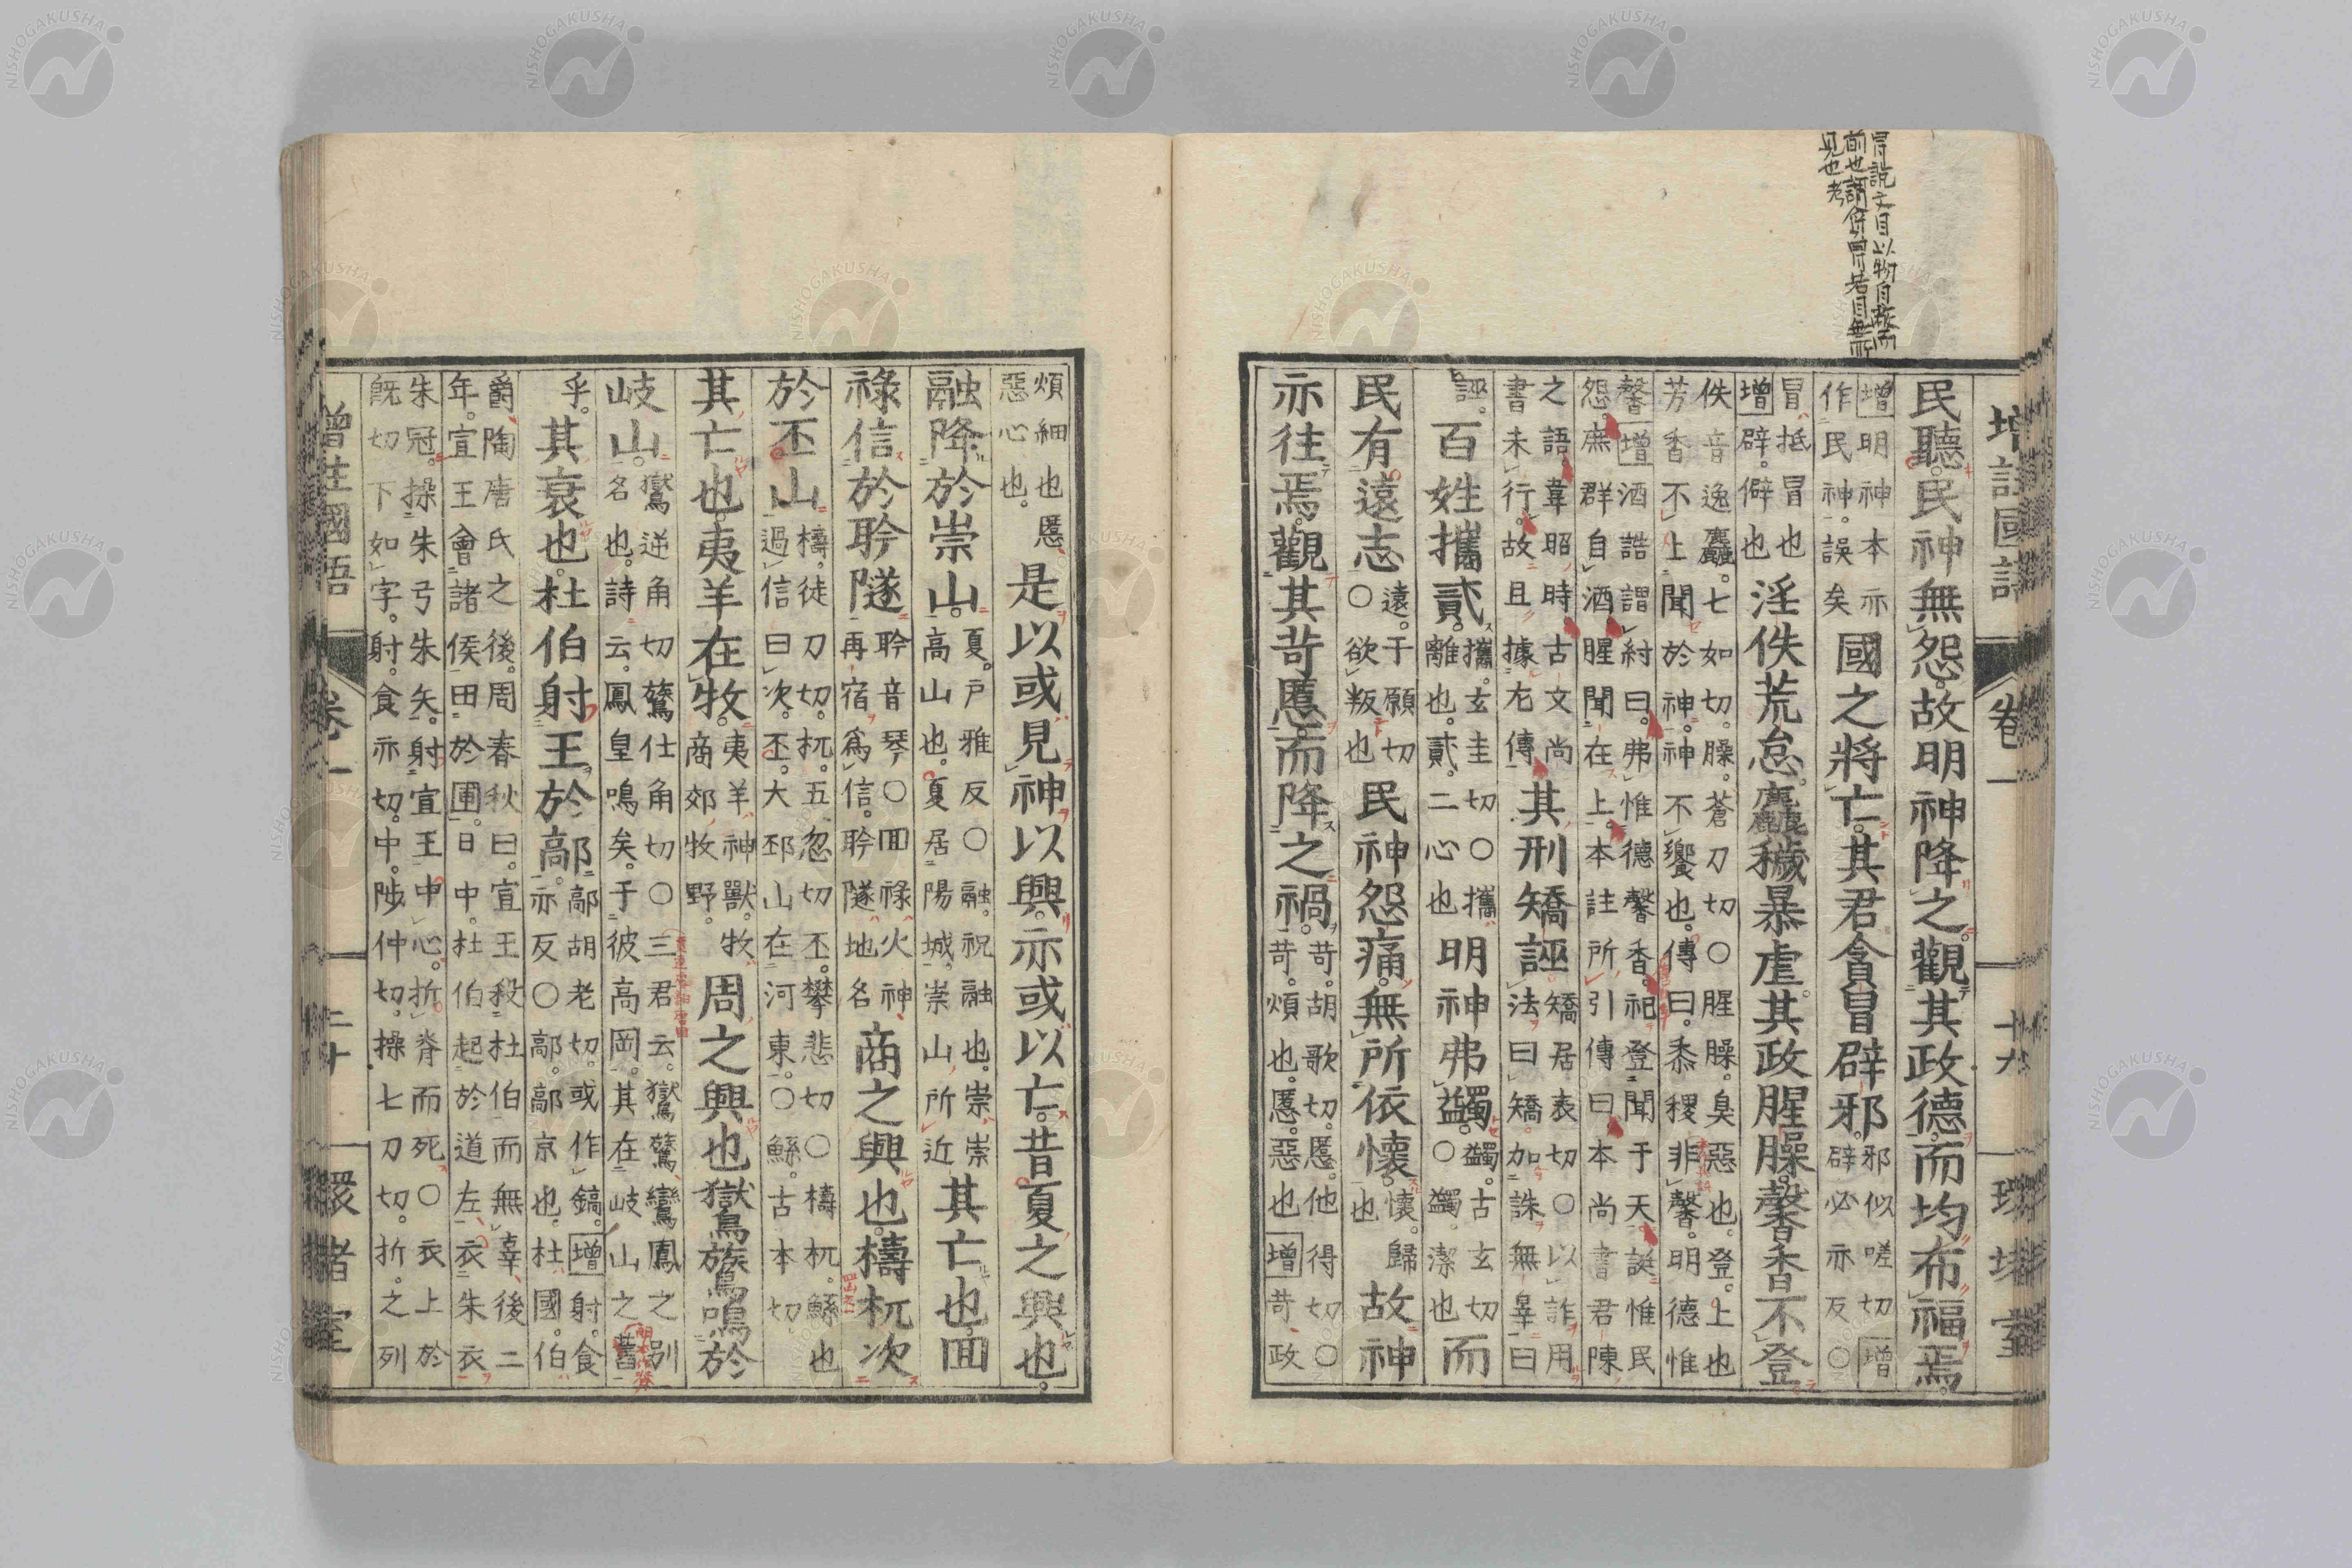 冒說文目以物自蔽而
前也謂貪冒若目無所
見也考
卷一
民聽民神無怨故明神降之觀其政德而均布福焉
增明神本亦作民神誤矣國之將亡其君貪冒辟邪邪似嗟切辟必亦反○增
冒抵冒也增辟僻也淫佚荒怠麤穢暴虐其政腥臊馨香不登
佚音逸麤七如切臊蒼刀切○腥臊臭惡也登上也
芳香不上聞於神神不饗也傳曰黍稷非馨明德惟
馨增酒誥謂紂曰弗惟德馨香祀登聞于天誕惟民
怨庶群自酒腥聞在上本註所引傳曰本尚書君陳
之語韋昭時古文尚書未行故且據左傳其刑矯誣矯居表切○以詐用法曰矯加誅無辠曰
誣百姓攜貳攜玄圭切○攜離也貳二心也明神弗蠲蠲古玄切○蠲潔也而
民有遠志遠于願切○欲叛也民神怨痛無所依懷懷歸也故神
亦往焉觀其苛慝而降之禍苛胡歌切慝他得切○苛煩也慝惡也增苛政
煩細也慝惡心也是以或見神以興亦或以亡昔夏之興也
融降於崇山夏戶雅反○融祝融也崇崇高山也夏居陽城崇山所近其亡也回
祿信於聆隧聆音琴○回祿火神再宿爲信聆隧地名商之興也檮杌次
於丕山檮徒刀切杌五忽切丕攀悲切○檮杌鯀也過信曰次丕大邳山在河東○鯀古本切
其亡也夷羊在牧夷羊神獸牧商郊牧野周之興也鸑鷟鳴於
岐山鸑逆角切鷟仕角切○三君云鸑鷟鸞鳳之別名也詩云鳳皇鳴矣于彼高岡其在岐山之舊
乎其衰也杜伯射王於鄗鄗胡老切或作鎬增射食亦反○鄗鄗京也杜國伯
爵陶唐氏之後周春秋曰宣王殺杜伯而無辜後二
年宣王會諸侯田於圃日中杜伯起於道左衣朱衣
朱冠操朱弓朱矢射宣王中心折脊而死○衣上於
旣切下如字射食亦切中陟仲切操七刀切折之列
增註國語 卷一 二十 環堵室